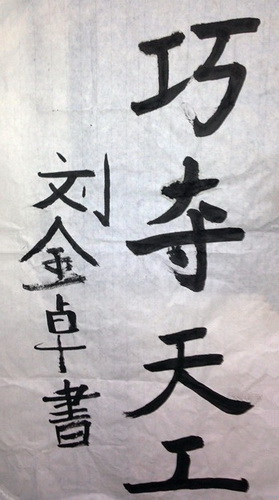 巧夺天工
刘金卓書